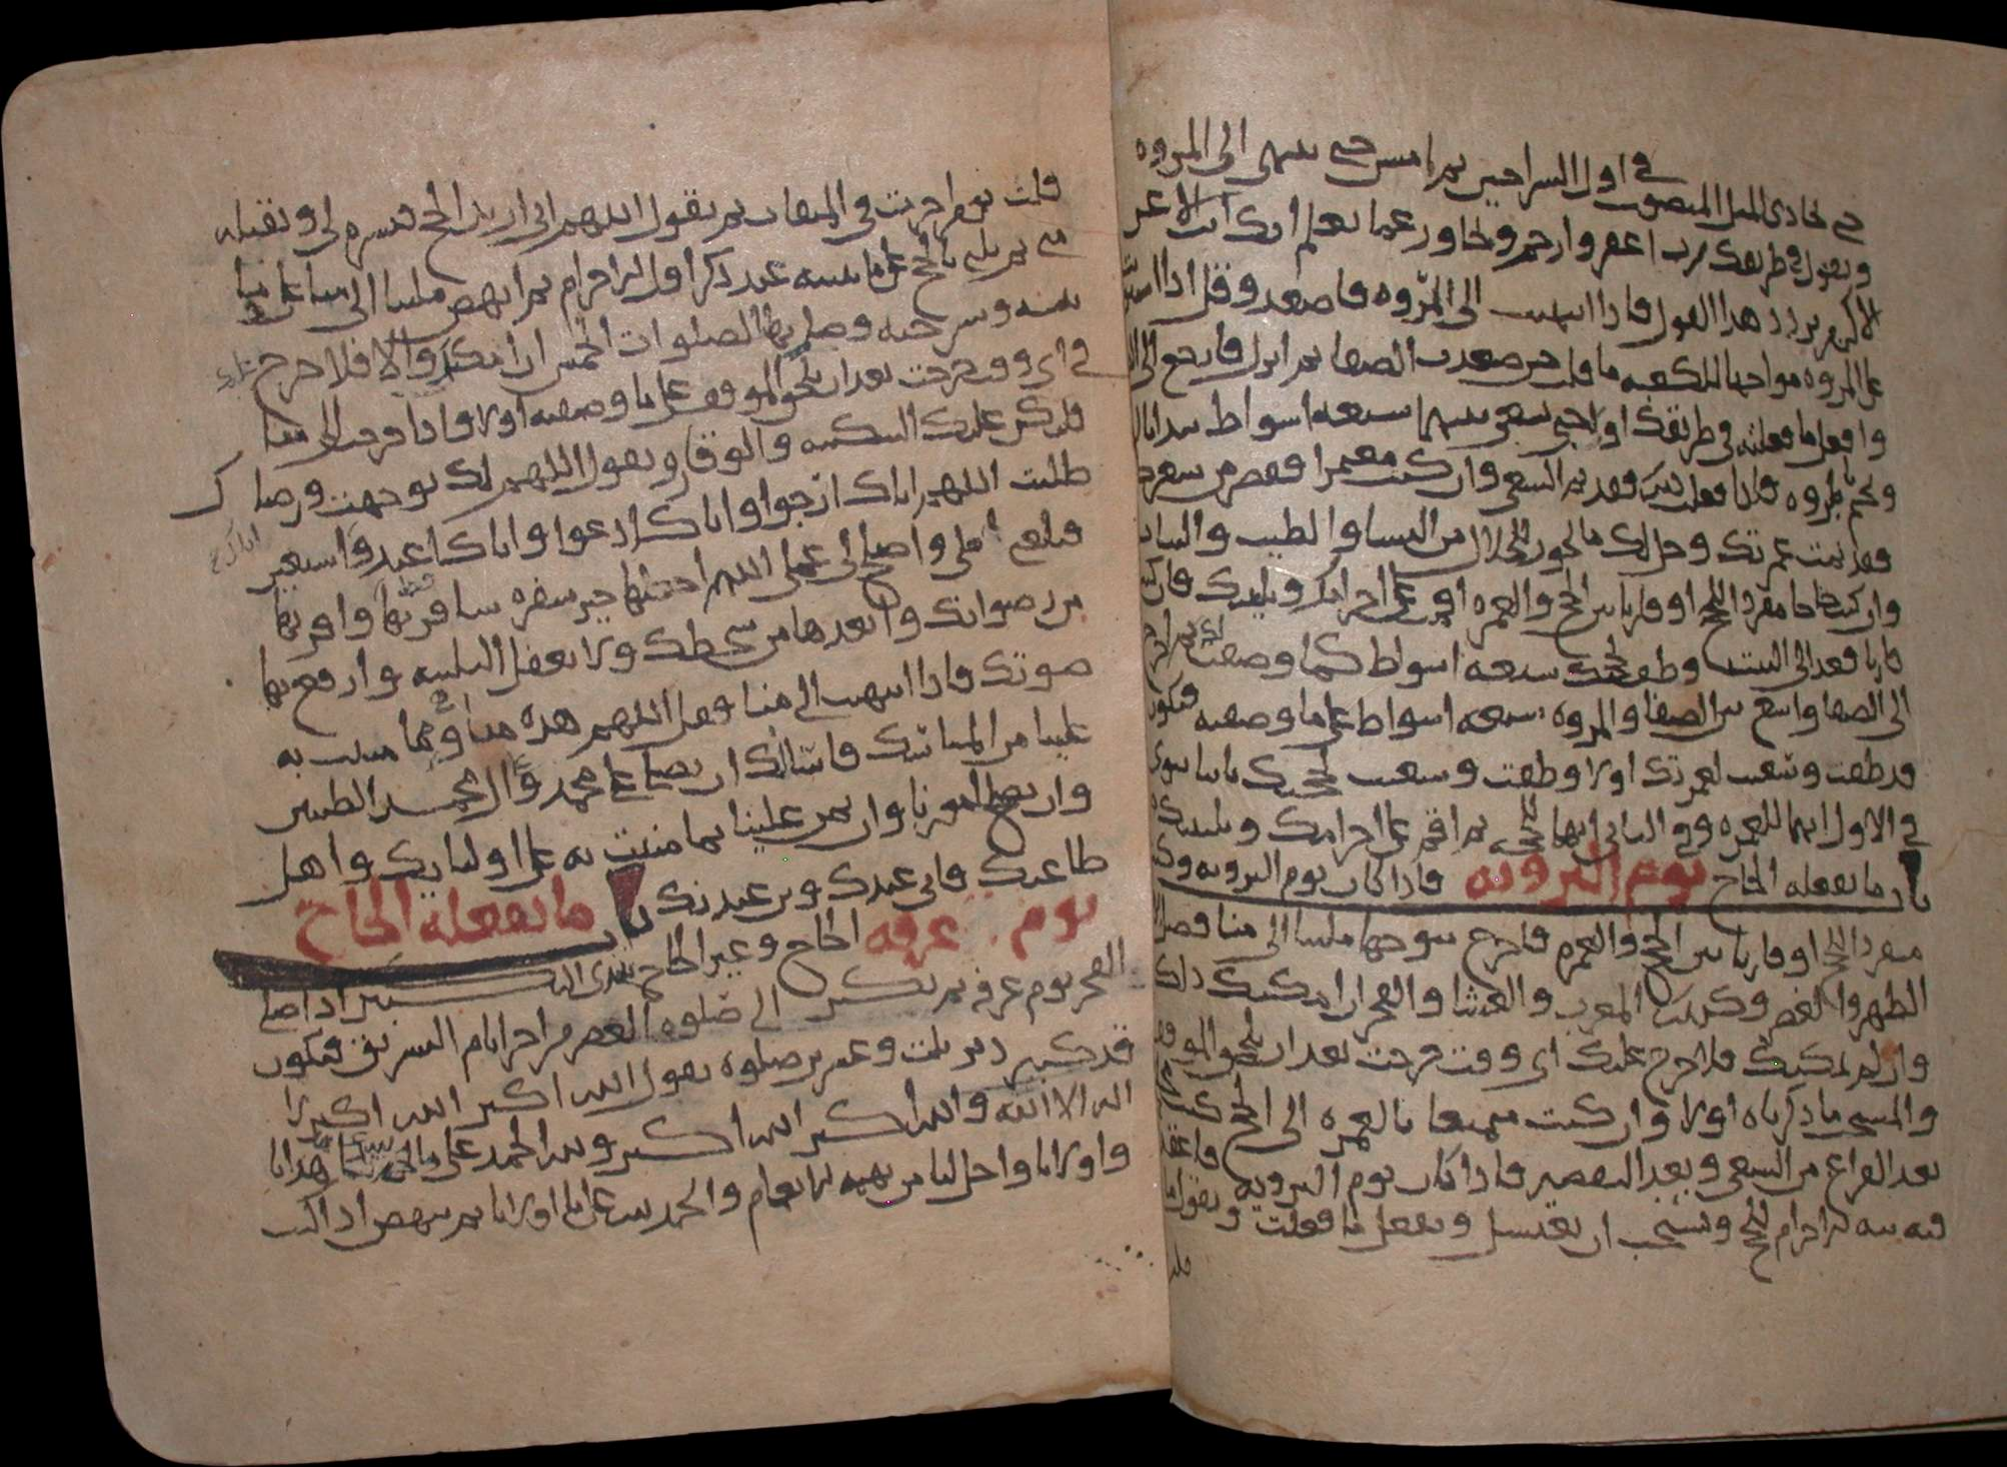 في اول السراجين ثم امش حتى تنتهي الى المروه
حتى تحاذي الميل المنصوب
وتقول في طريقك رب اغفر وارحم وتجاوز عما تعلم انك انت الاعز
الاكرم تردد هذا القول فاذا انتهيت الى المروه فاصعد وقل اذا
على المروه مواجها للكعبه ما قلت حين صعدت الصفا ثم انزل فارجع الى
وافعل ما فعلته في طريقك اولا حتى تسعى بينهما سبعه اشواط تبدا
وتختم بالمروه فاذا فعلت ذلك فقد تم السعي وان كنت معتمرا فقصر من شعرك
فقد تمت عمرتك وحل لك ما يجوز للحلال من النسا والطيب والثياب
وان كنت حاجا مفردا للحج او قارنا بين الحج والعمره فق على احرامك وتلبيتك فان كنت
قارنا فعد الى البيت وطف لحجك سبعه اشواط كما وصفت لك ثم اخرج
الى الصفا واسع بين الصفا والمروه سبعه اشواط على ما وصفته فتكون
قد طفت وسعيت لعمرتك اولا وطفت وسعيت لحجك ثانيا تنوي
في الاول انهما للعمره وفي الثاني انهما للحج ثم اقم على احرامك وتلبيتك
باب ما يفعله الحاج يوم الترويه فاذا كان يوم الترويه وكنت
مفردا للحج او قارنا بين الحج والعمره فاخرج متوجها ملبيا الى منا فصل
الظهر والعصر وكذلك المغرب والعشا والفجر ان امكنك ذلك
وان لم يمكنك فلا حرج عليك اي وقت خرجت بعد ان تلحق الموقف
والمستحب ما ذكرناه اولا وان كنت متمتعا بالعمره الى الحج كنت
بعد الفراغ من السعي وبعد التقصير فاذا كان يوم الترويه فاعقد
فيه نيه الاحرام للحج ويستحب ان تغتسل وتفعل ما فعلت وتقول ما
قلت
قلت يوم احرمت في الميقات ثم تقول اللهم اني اريد الحج فيسره لي وتقبله
مني ثم تلبي بالحج على ما بينته عند ذكر اول الاحرام ثم انهض ملبيا الى منا
وصل بها الصلوات الخمس ان امكنك والا فلا حرج عليك
في اي وقت خرجت بعد ان تلحق الموقف على ما وصفته اولا فاذا خرجت الى منا
فلتكن عليك السكينه والوقار وتقول اللهم لك توجهت ورضاك
طلبت اللهم اياك ارجوا واياك ادعوا واياك اعبد واستعين
فبلغني املي واصلح لي عملي اللهم اجعلها خير سفره سافرتها قط واقربها
من رضوانك وابعدها من سخطك ولا تغفل التلبيه وارفع بها
صوتك فاذا انتهيت الى منا فقل اللهم هذه منا وهي مما مننت به
علينا من المناسك فاسالك ان تصلي على محمد وال محمد الطيبين
وان تصلح امورنا وان تمن علينا بما مننت به على اوليائك واهل
طاعتك فاني عبدك وبن عبديك باب ما يفعله الحاج
يوم عرفه الحاج وغير الحاج يبتدي التكبير اذا صلى
الفجر يوم عرفه ثم يكبر الى صلوه العصر من اخر ايام التشريق فتكون
قد كبرت دبر ثلث وعشرين صلوه تقول الله اكبر الله اكبر لا
اله الا الله والله اكبر الله اكبر ولله الحمد على ما هدانا
واولانا واحل لنا من بهيمه الانعام والحمد لله على ما اولانا ثم تنهض اذا كنت